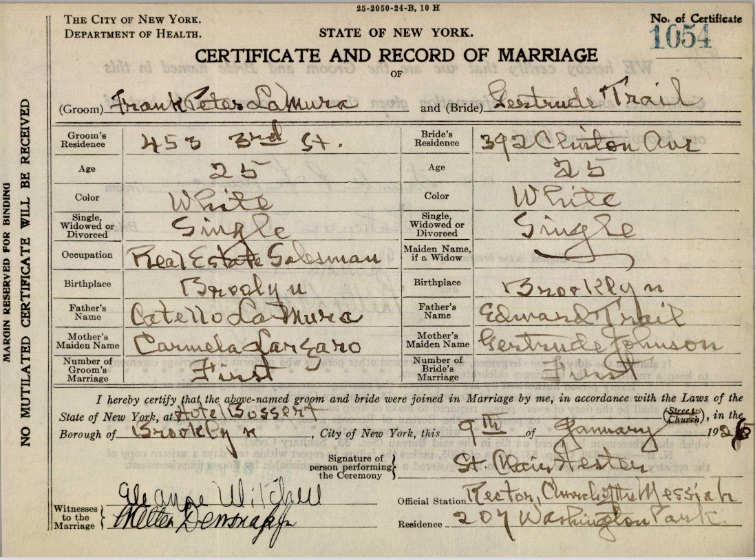 25-2050-24-B, 10 H
THE CITY OF NEW YORK.
DEPARTMENT OF HEALTH.
STATE OF NEW YORK.
No. of Certificate
1054
CERTIFICATE AND RECORD OF MARRIAGE
OF
(Groom) Frank Peter LaMura and (Bride) Gertrude Trail
Groom's Residence 453 3rd St. Bride's Residence 392 Clinton Ave
Age 25 Age 25
Color White Color White
Single, Widowed or Divorced Single Single, Widowed or Divorced Single
Occupation Real Estate Salesman Maiden Name, if a Widow
Birthplace Brooklyn Birthplace Brooklyn
Father's Name Catello LaMura Father's Name Edward Trail
Mother's Maiden Name Carmela Lanzaro Mother's Maiden Name Gertrude Johnson
Number of Groom's Marriage First Number of Bride's Marriage First
I hereby certify that the above-named groom and bride were joined in Marriage by me, in accordance with the Laws of the
State of New York, at Hotel Bossert (Street or Church), in the
Borough of Brooklyn, City of New York, this 9th of January 1926
Signature of person performing the Ceremony St. Clair Hester
Witnesses to the Marriage Eleanor Mitchell
Official Station Rector, Church of the Messiah
Residence 207 Washington Park.
MARGIN RESERVED FOR BINDING
NO MUTILATED CERTIFICATE WILL BE RECEIVED